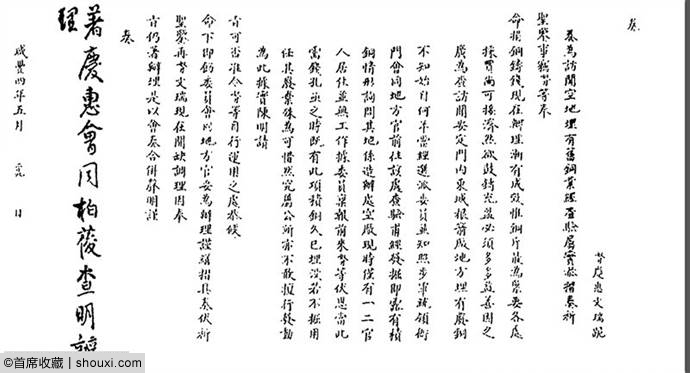 奏
奴才慶惠文瑞跪
奏為訪聞空地埋有舊銅業經查驗屬實恭摺奏祈
聖鑒事竊奴才等奉
命捐銅鑄錢現在辦理漸有成效惟銅斤最為緊要各處
採買尚可接濟然欲鼓鑄充盈必須多多益善因之
廣為採訪聞安定門內東城根前成地方埋有廢銅
不知始自何年當經遴派委員並知照步軍統領衙
門會同地方官前往該處查驗甫經發掘即露有積
銅情形詢問其地係造辦處空廠現時僅有一二官
人居住並無工作據委員稟報前來奴才等伏思當此
需錢孔亟之時既有此項積銅久已埋沒若不掘用
任其廢棄殊為可惜然究屬公所亦不敢擅行發動
為此據實陳明請
旨可否准令奴才等自行運用之處恭候
命下即飭委員會同地方官妥為辦理謹繕摺具奏伏祈
聖鑒再奴才文瑞現在開缺調理因奉
旨仍著辦理是以會奏合併聲明謹
奏
著慶惠會同柏葰查明辦
理
咸豐四年五月 日
©首席收藏 | shouxi.com